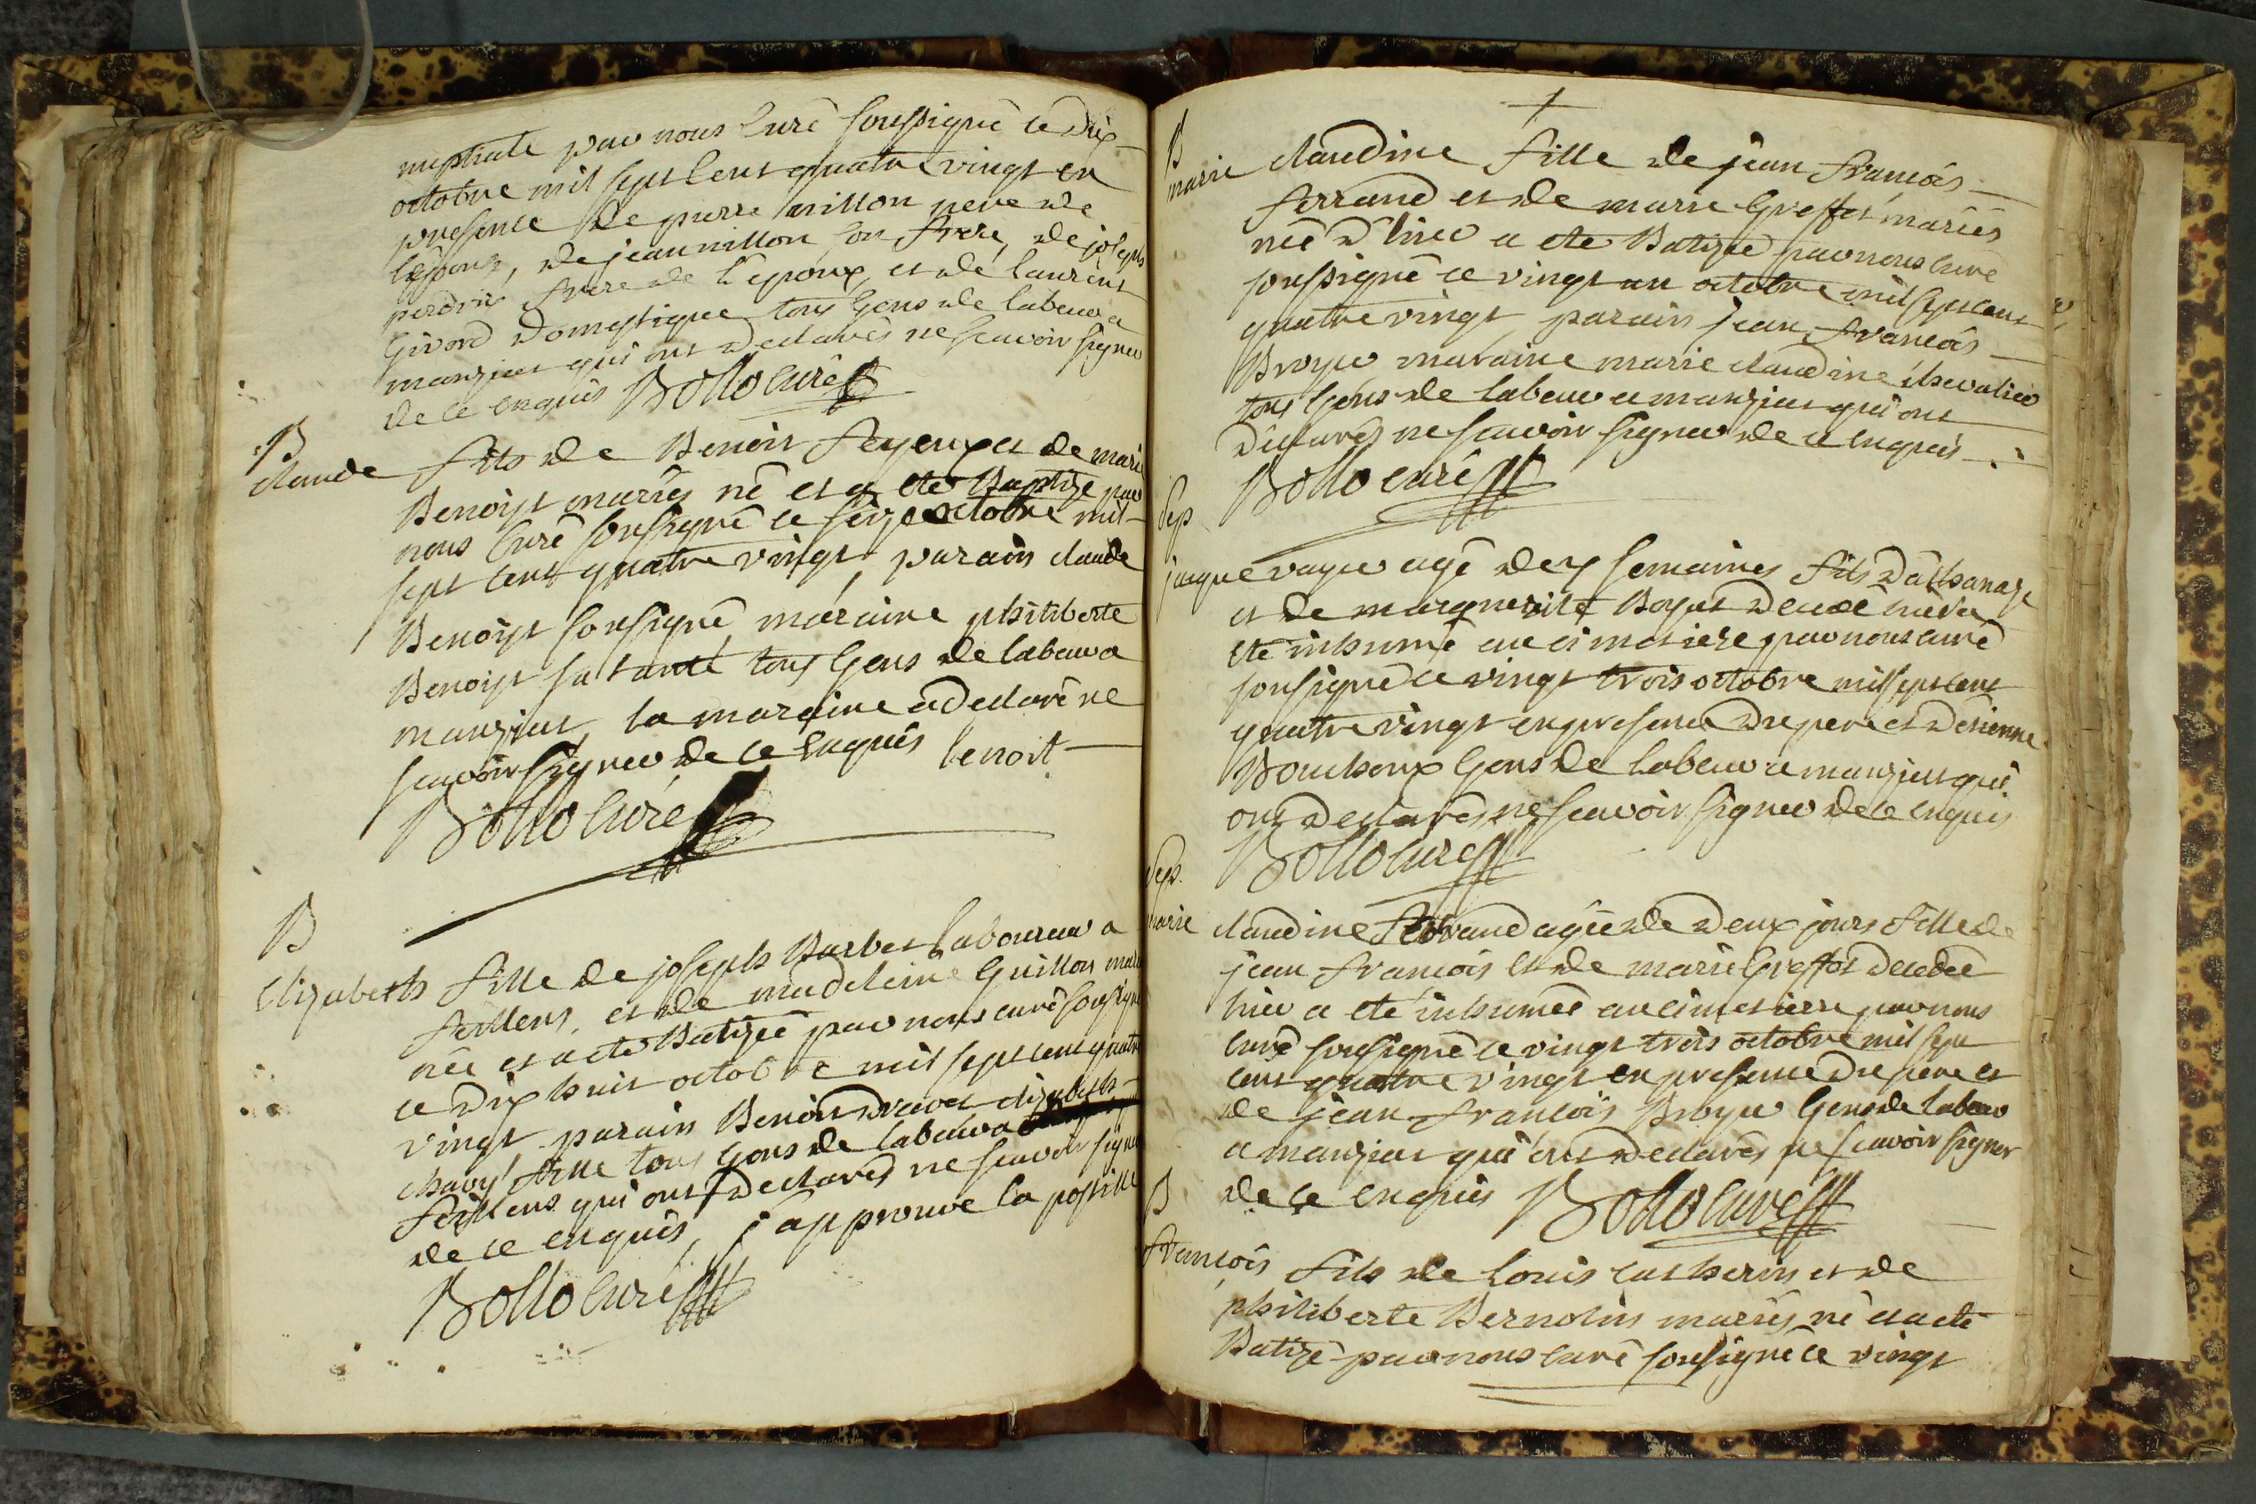 nuptiale par nous Curé soussigné le dix
octobre mil sept Cent quatre vingt en
presence de pierre nillon pere de
lepouse, de jean nillon son frere, de joseph
perdrix frere de l'epoux, et de laurent
Givord domestique tous Gens de labeur a
manziat qui ont declarés ne scavoir signer
de ce enquis Bollo Curé
B
claude fils de Benoit feyeux et de marie
Benoist mariés né et a eté Baptizé par
nous Curé soussigné le seize octobre mil
sept Cent quatre vingt, parain claude
Benoist sousigné maraine philiberte
Benoist sa tante tous Gens de labeur a
manziat, la maraine a declaré ne
scavoir signer de ce enquis benoit
Bollo Curé
B
Elizabeth fille de joseph Barbet laboureur a
feillens, et de madeleine Guillon mariés
née et a eté Batizée par nous curé sousigné
le dix huit octobre mil sept cent quatre
vingt parain Benoit elizabeth
chavy tous Gens de labeur a
feillens qui ont declarés ne scavoir signer
de ce enquis, j'approuve la postille
Bollo Curé
B
marie claudine fille de jean francois
ferrand et de marie Greffet mariés
née d'hier a eté Batizée par nous Curé
soussigné le vingt un octobre mil sept cent
quatre vingt, parain jean francois
Broyer maraine marie claudine chevalier
tous Gens de labeur a manziat qui ont
declarés ne scavoir signer de ce enquis
Bollo curé
Sep
jacque voyer agé de semaines fils d'athanaze
et de marguerite Boyat decedé hier a
eté inhumé au cimetiere par nous curé
sousigné le vingt trois octobre mil sept cent
quatre vingt en presence du pere et d'etienne
Bouchoux Gens de labeur a manziat qui
ont declarés ne scavoir signer de ce enquis
Bollo Curé
Sep.
marie claudine ferrand agée de deux jours fille de
jean francois et de marie Greffet decedée
hier a eté inhumée au cimetierre par nous
Curé sousigné le vingt trois octobre mil sept
cent quatre vingt en presence du pere et
de jean francois Broyer Gens de labeur
a manziat qui ont declarés ne scavoir signer
de ce enquis Bollo Curé
B
francois fils de louis catherin et de
philiberte Bernolin mariés, né et a eté
Batizé par nous Curé sousigné le vingt